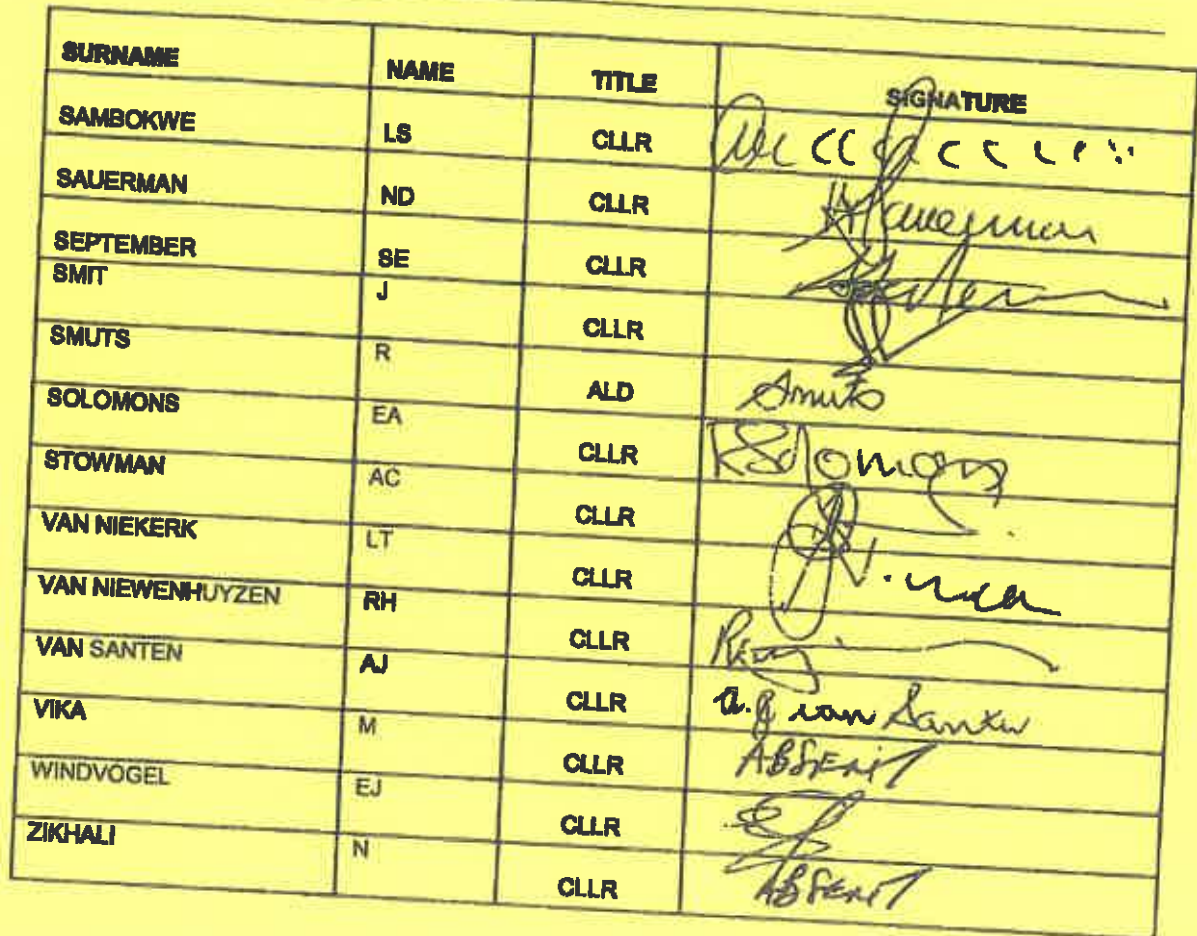 SURNAME NAME TITLE SIGNATURE
SAMBOKWE LS CLLR
SAUERMAN ND CLLR
SEPTEMBER SE CLLR
SMIT J CLLR
SMUTS R ALD Smuts
SOLOMONS EA CLLR Solomons
STOWMAN AC CLLR
VAN NIEKERK LT CLLR
VAN NIEWENHUYZEN RH CLLR
VAN SANTEN AJ CLLR A.J van Santen
VIKA M CLLR ABSENT
WINDVOGEL EJ CLLR
ZIKHALI N CLLR ABSENT